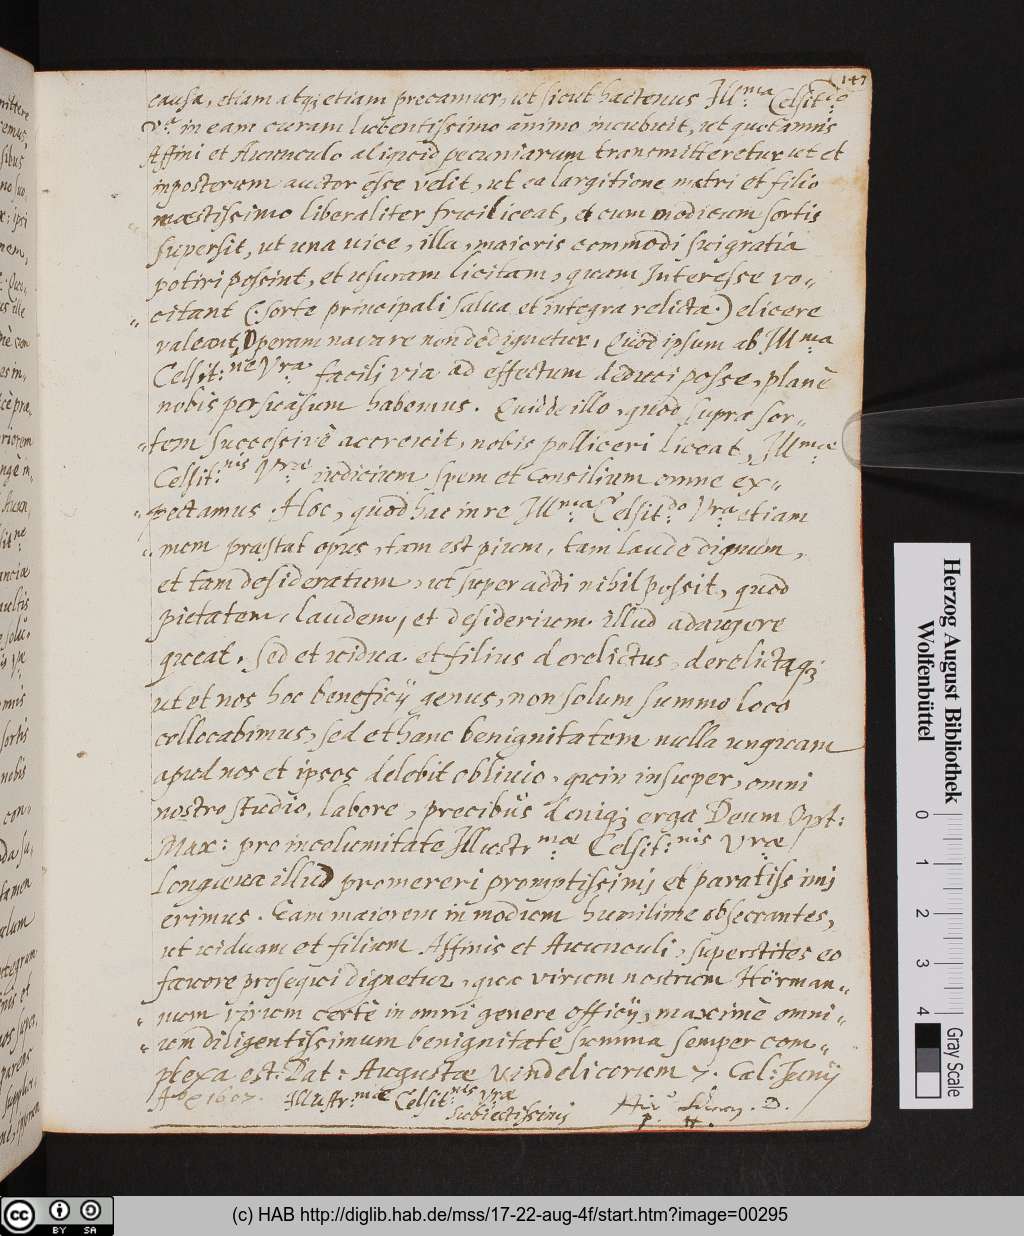 147
causa, etiam atq; etiam precamur, ut sicut hactenus Ill:ma Celsit:do
Vra in eam curam lubentissimo animo incubuit, ut quotannis
Affini et Auunculo aliquid pecuniarum transmitteretur, ut et
inposterum auctor esse velit, ut ea largitione matri et filio
mæstissimo liberaliter frui liceat, et cum modicum sortis
supersit, ut una vice, illa, maioris commodi sui gratia
potiri possint, et usuram licitam, quam Interesse vo-
citant (: sorte principali salua et integra relicta :) elicere
valeant, Operam nauare non dedignetur, Quod ipsum ab Ill:ma
Celsit:ne Vra facili via ad effectum deduci posse, planè
nobis persuasum habemus. Quid de illo, quod supra sor-
tem successivè accreuit, nobis polliceri liceat, Ill:mæ
Celsit:nis Vræ iudicium spem et Consilium omne ex-
pectamus. Hoc, quod hac in re Ill:ma Celsit:do Vra etiam
præstat opus, tam est pium, tam laude dignum,
et tam desideratum, ut superaddi nihil possit, quod
pietatem, laudem, et desiderium illud adaugere
queat. Sed et vidua et filius derelictus, derelictaq;
ut et nos hoc beneficij genus, non solum summo loco
collocabimus, sed et hanc benignitatem nulla unquam
apud nos et ipsos delebit obliuio, quin insuper, omni
nostro studio, labore, precibus deniq; erga Deum Opt:
Max: pro incolumitate Illustr:mæ Celsit:nis Vræ
Longæua illud promereri promptissimi et paratissimi
erimus. Eam maiorem in modum humilime obsecrantes,
ut viduam et filium Affinis et Auunculi, superstites eo
fauore prosequi dignetur, quæ virum nostrum Hörman-
num ipsum certè in omni genere officij, maximè omni-
um diligentissimum benignitate summa semper com-
plexa est. Dat: Augustæ Vindelicorum 7. Cal: Junij
Ao 1607. Illustr:mæ Celsit:nis Vræ
Subiectissimi
Herzog August Bibliothek
Wolfenbüttel
0 1 2 3 4
Gray Scale
cc BY SA
(c) HAB http://diglib.hab.de/mss/17-22-aug-4f/start.htm?image=00295